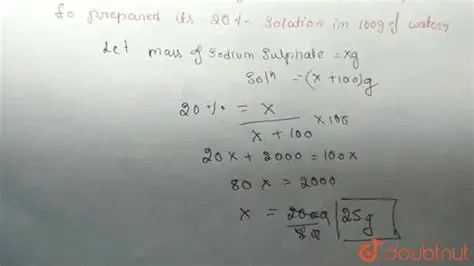 So prepared its 20% Solution in 100g of water,
Let mass of Sodium Sulphate = xg
Solⁿ = (x + 100)g
20% = x / x + 100 × 100
20x + 2000 = 100x
80x = 2000
x = 2000 / 80 | 25g
doubtnut